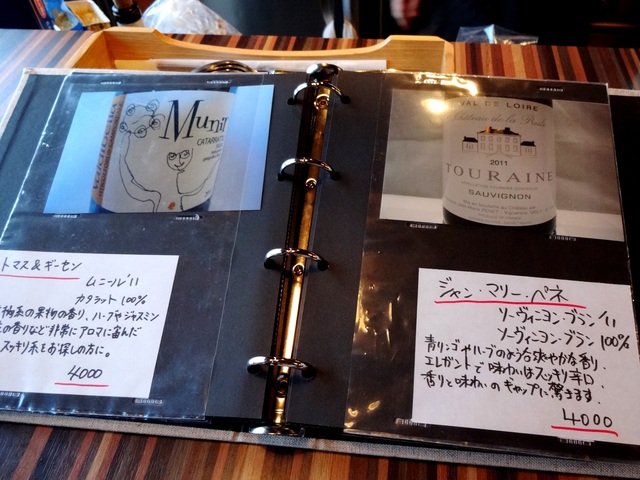 Munir
CATARRATTO
トマス&ギーセン
ムニール'11
カタラット 100%
物系の果物の香り、ハーブやジャスミン
の香りなど非常にアロマに富んだ
スッキリ系をお探しの方に。
4000
VAL DE LOIRE
Château de la Presle
2011
TOURAINE
SAUVIGNON
ジャン・マリー・ペネ
ソーヴィニヨン・ブラン'11
ソーヴィニヨン・ブラン 100%
青リンゴやハーブのような爽やかな香り。
エレガントで味わいはスッキリ辛口。
香りと味わいのギャップに驚きます。
4000